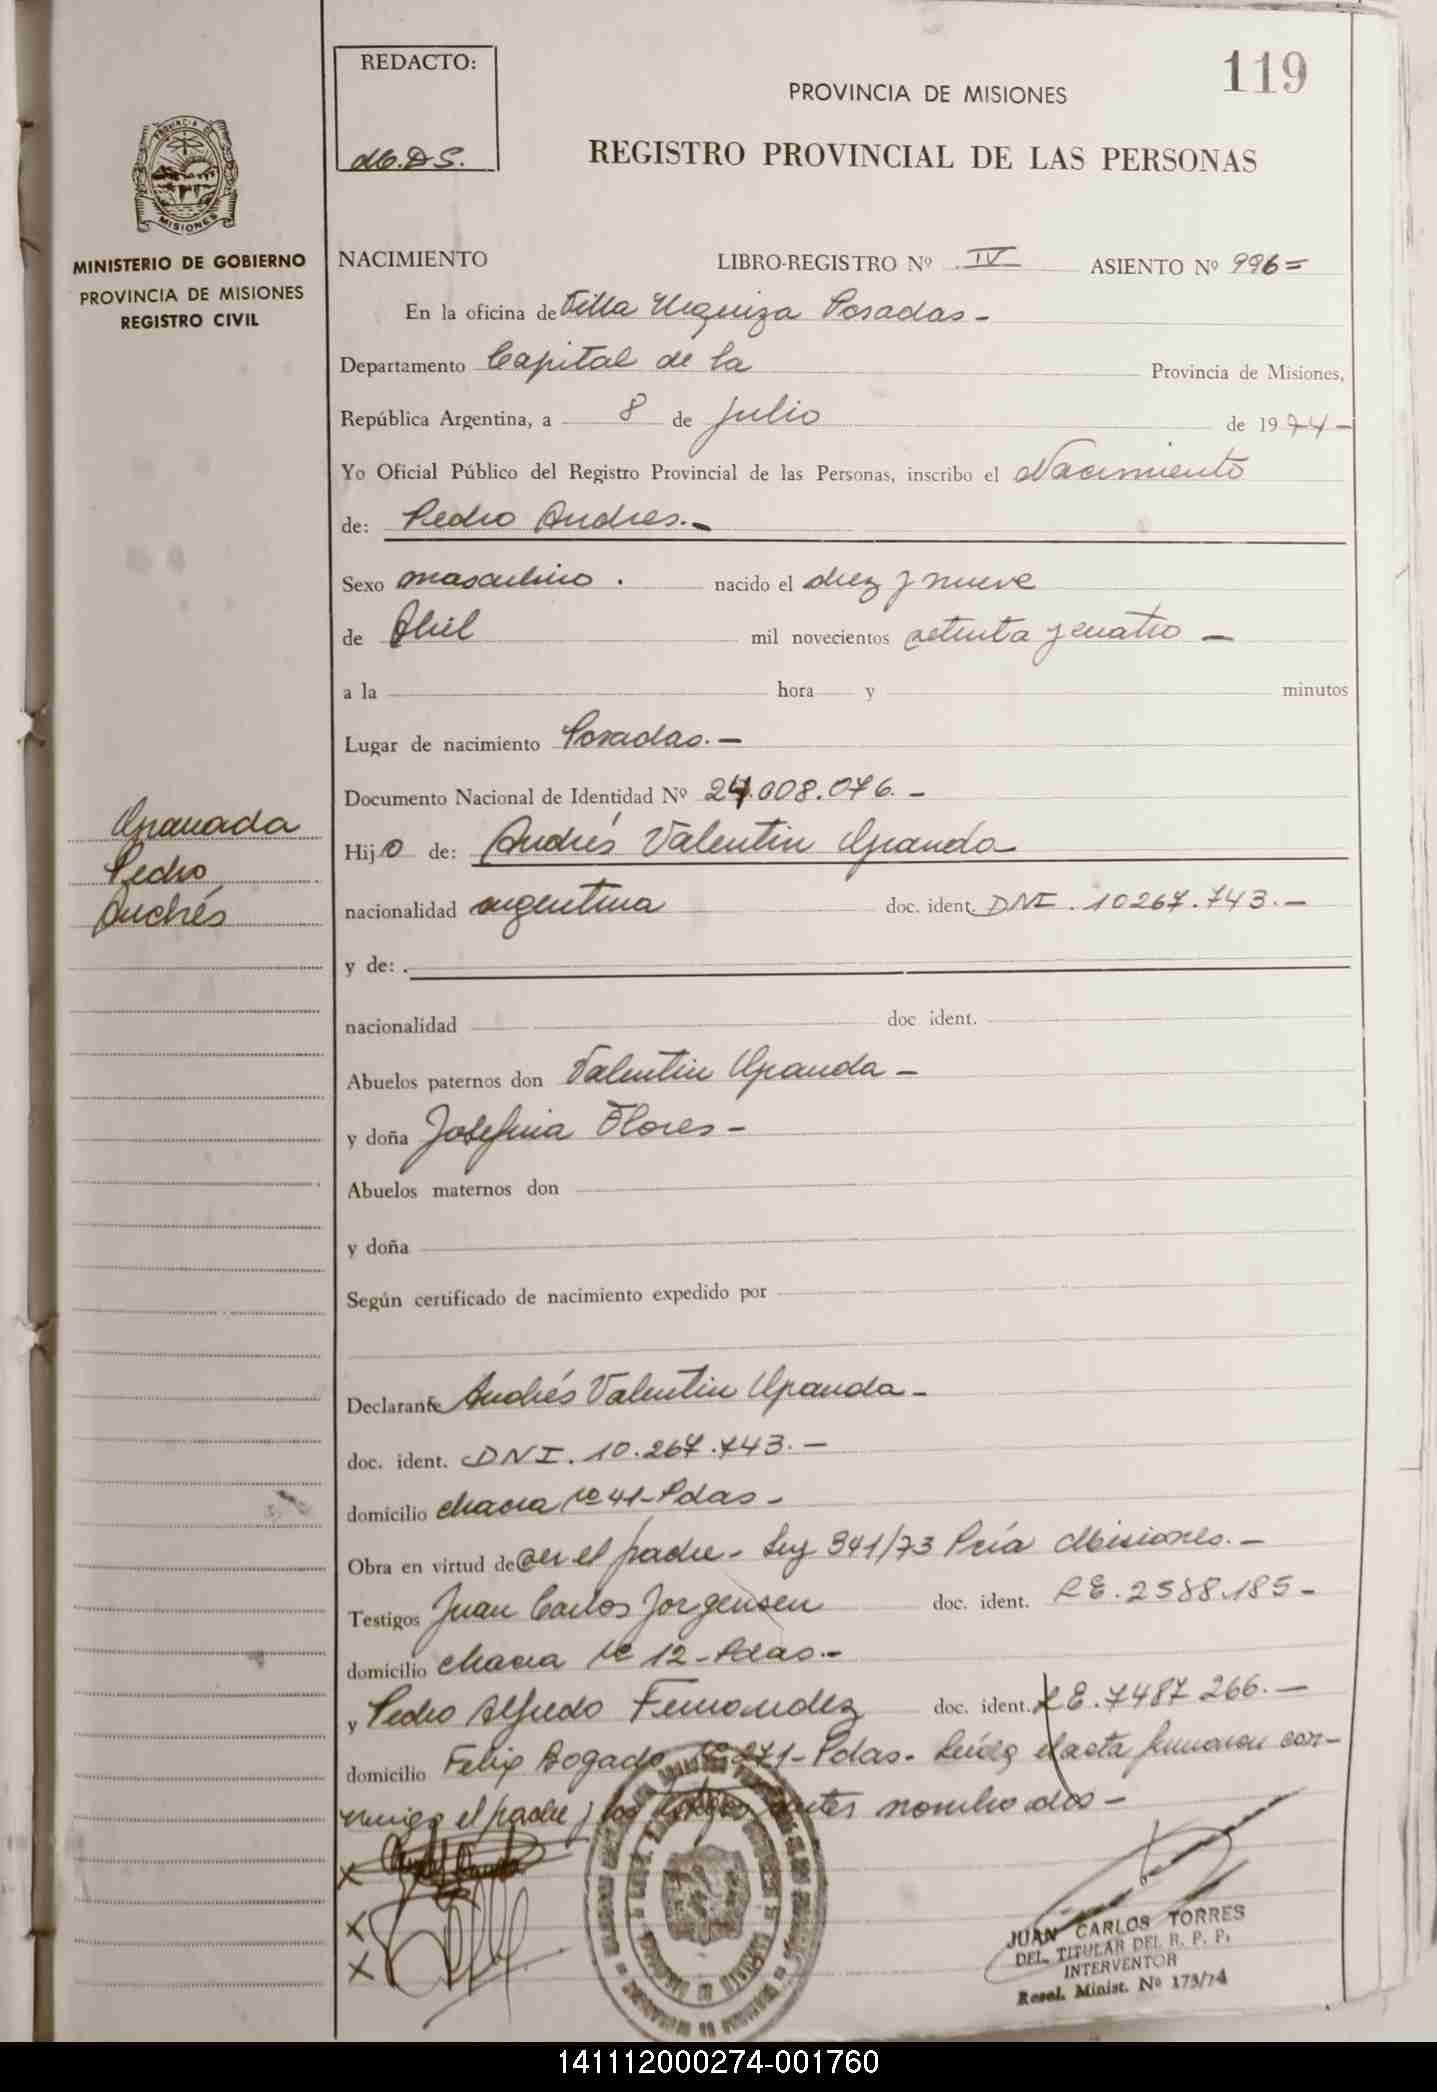 REDACTO:
119
PROVINCIA DE MISIONES
REGISTRO PROVINCIAL DE LAS PERSONAS
MISIONES
MINISTERIO DE GOBIERNO
PROVINCIA DE MISIONES
REGISTRO CIVIL
NACIMIENTO LIBRO-REGISTRO Nº IV ASIENTO Nº 996=
En la oficina de Villa Urquiza Posadas-
Departamento Capital de la Provincia de Misiones,
República Argentina, a 8 de Julio de 1974-
Yo Oficial Público del Registro Provincial de las Personas, inscribo el Nacimiento
de: Pedro Andres.-
Sexo masculino. nacido el diez y nueve
de Abril mil novecientos setenta y cuatro -
a la hora y minutos
Lugar de nacimiento Posadas.-
Documento Nacional de Identidad Nº 24.008.076.-
Pedro
Andrés
Hijo de: Andrés Valentin
nacionalidad argentina doc. ident. DNI. 10267.743.-
y de:
nacionalidad doc ident.
Abuelos paternos don Valentin
y doña Josefina Flores-
Abuelos maternos don
y doña
Según certificado de nacimiento expedido por
Declarante Andrés Valentin
doc. ident. DNI. 10.267.743.-
domicilio chacra Nº 41-Pdas-
Obra en virtud de ser el padre- Ley 341/73 Pcia Misiones.-
Testigos Juan Carlos Jorgensen doc. ident. LE.2588.185-
domicilio chacra Nº 12-Pdas.-
y Pedro Alfredo Fernandez doc. ident. LE.7487 266.-
domicilio Felix Bogado Nº 271-Pdas- Leída el acta firmaron con-
migo el padre y los testigos antes nombrados-
JUAN CARLOS TORRES
DEL. TITULAR DEL R. P. P.
INTERVENTOR
Resol. Minist. Nº 173/74
141112000274-001760